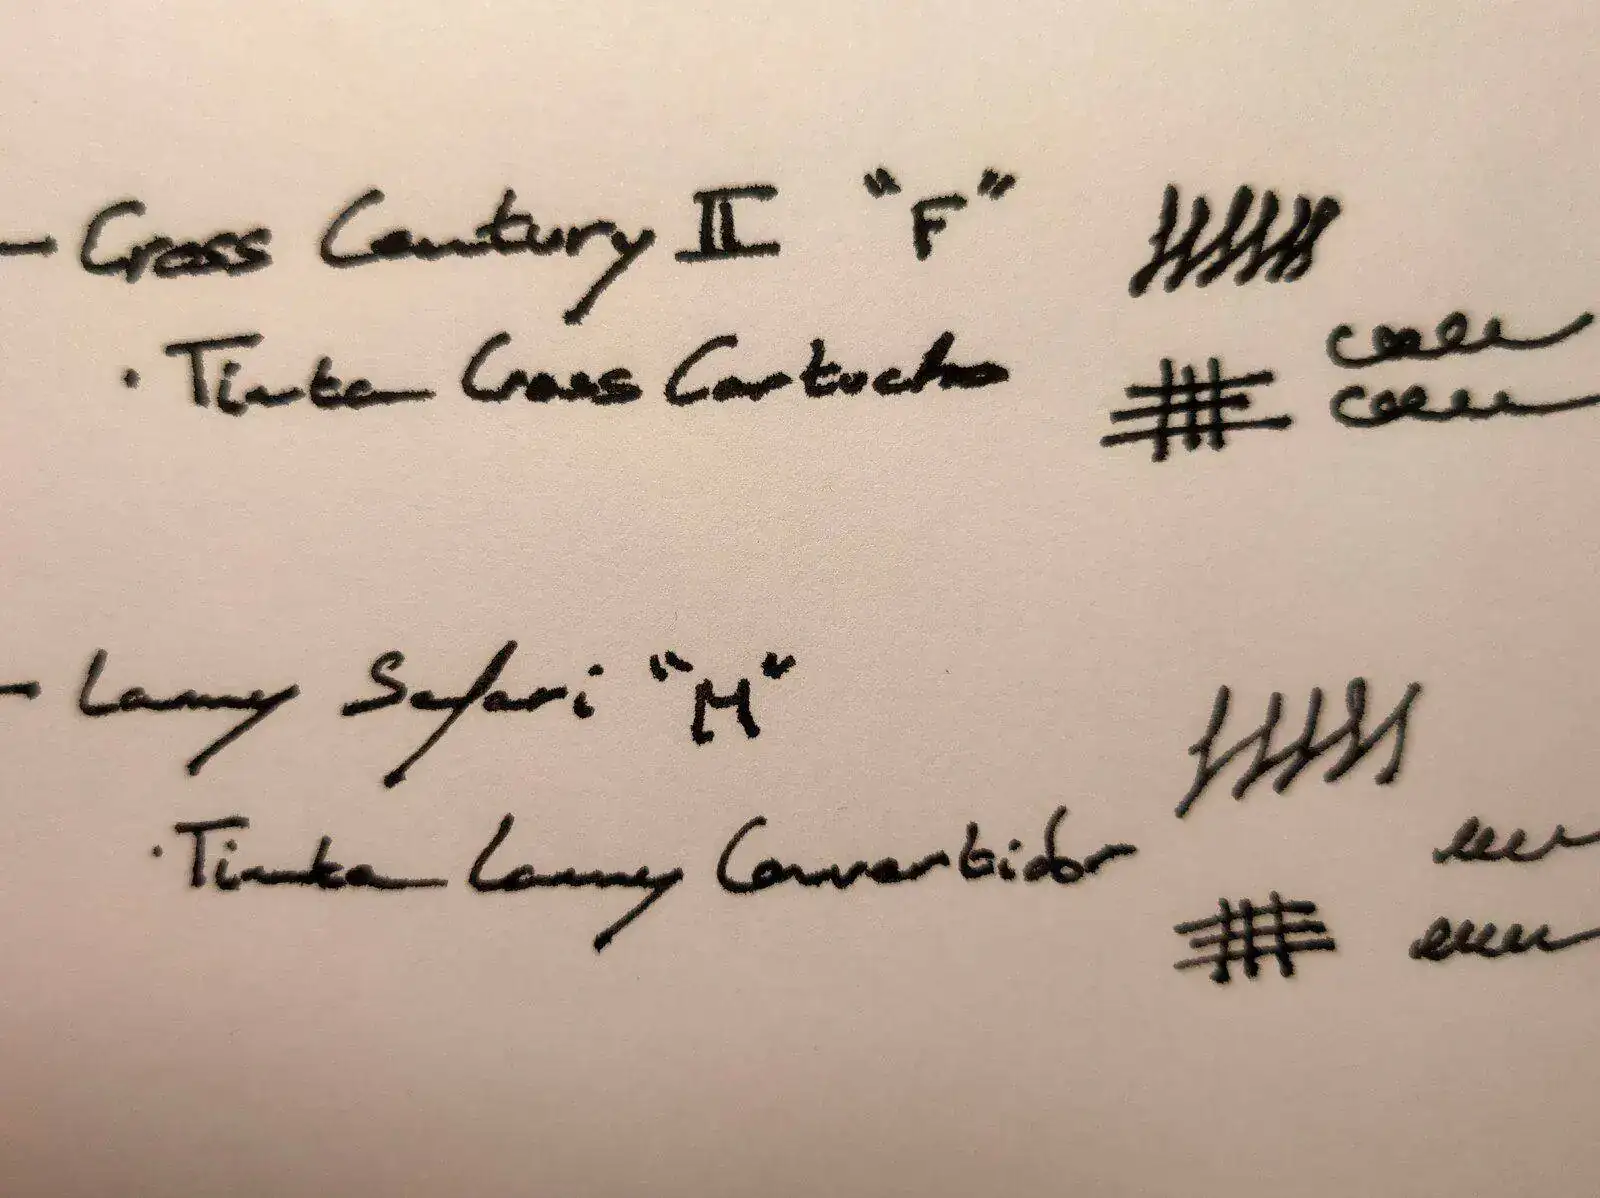 - Cross Century II "F"
· Tinta Cross Cartucho
- Lamy Safari "M"
· Tinta Lamy Convertidor